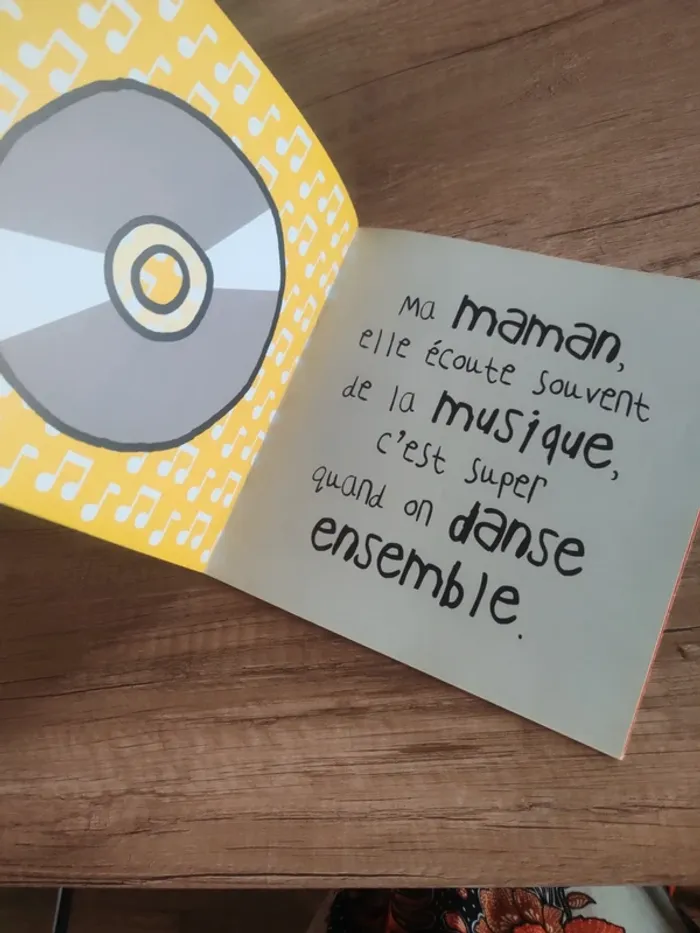 Ma maman,
elle écoute souvent
de la musique,
c'est super
quand on danse
ensemble.